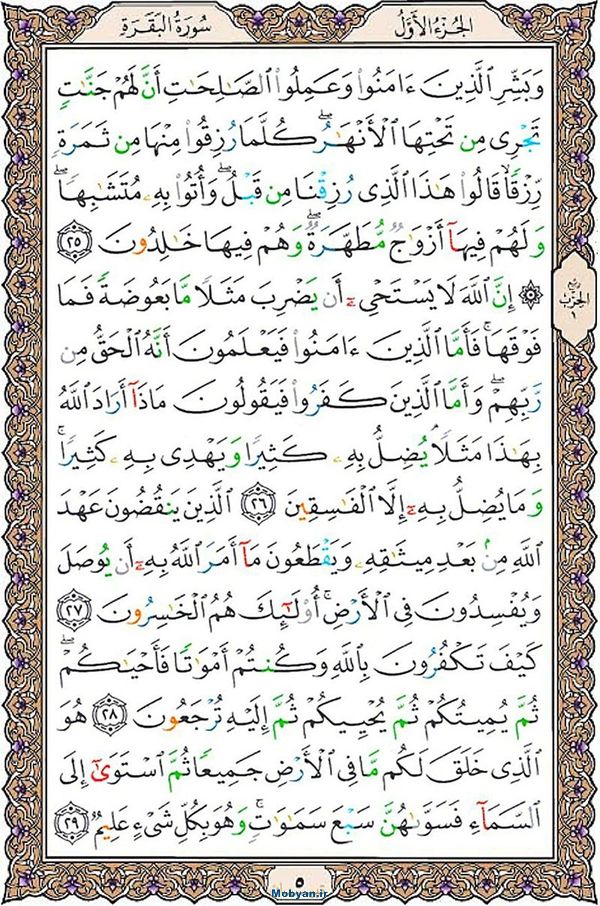 سُورَةُ البَقَرَةِ
الجُزءُ الأَوَّلُ
وَبَشِّرِ الَّذِينَ ءَامَنُوا وَعَمِلُوا الصَّالِحَاتِ أَنَّ لَهُمْ جَنَّاتٍ
تَجْرِى مِن تَحْتِهَا الْأَنْهَارُ ۖ كُلَّمَا رُزِقُوا مِنْهَا مِن ثَمَرَةٍ
رِّزْقًا ۙ قَالُوا هَٰذَا الَّذِى رُزِقْنَا مِن قَبْلُ ۖ وَأُتُوا بِهِۦ مُتَشَابِهًا ۖ
وَلَهُمْ فِيهَآ أَزْوَاجٌ مُّطَهَّرَةٌ ۖ وَهُمْ فِيهَا خَالِدُونَ ﴿٢٥﴾
۞ إِنَّ اللَّهَ لَا يَسْتَحْىِۦٓ أَن يَضْرِبَ مَثَلًا مَّا بَعُوضَةً فَمَا
فَوْقَهَا ۚ فَأَمَّا الَّذِينَ ءَامَنُوا فَيَعْلَمُونَ أَنَّهُ الْحَقُّ مِن
رَّبِّهِمْ ۖ وَأَمَّا الَّذِينَ كَفَرُوا فَيَقُولُونَ مَاذَآ أَرَادَ اللَّهُ
بِهَٰذَا مَثَلًا ۘ يُضِلُّ بِهِۦ كَثِيرًا وَيَهْدِى بِهِۦ كَثِيرًا ۚ
وَمَا يُضِلُّ بِهِۦٓ إِلَّا الْفَاسِقِينَ ﴿٢٦﴾ الَّذِينَ يَنقُضُونَ عَهْدَ
اللَّهِ مِنۢ بَعْدِ مِيثَاقِهِۦ وَيَقْطَعُونَ مَآ أَمَرَ اللَّهُ بِهِۦٓ أَن يُوصَلَ
وَيُفْسِدُونَ فِى الْأَرْضِ ۚ أُولَٰٓئِكَ هُمُ الْخَاسِرُونَ ﴿٢٧﴾
كَيْفَ تَكْفُرُونَ بِاللَّهِ وَكُنتُمْ أَمْوَاتًا فَأَحْيَاكُمْ ۖ
ثُمَّ يُمِيتُكُمْ ثُمَّ يُحْيِيكُمْ ثُمَّ إِلَيْهِ تُرْجَعُونَ ﴿٢٨﴾ هُوَ
الَّذِى خَلَقَ لَكُم مَّا فِى الْأَرْضِ جَمِيعًا ثُمَّ اسْتَوَىٰٓ إِلَى
السَّمَآءِ فَسَوَّاهُنَّ سَبْعَ سَمَٰوَاتٍ ۚ وَهُوَ بِكُلِّ شَىْءٍ عَلِيمٌ ﴿٢٩﴾
ربع
الحزب
١
٥
Mobyan.ir